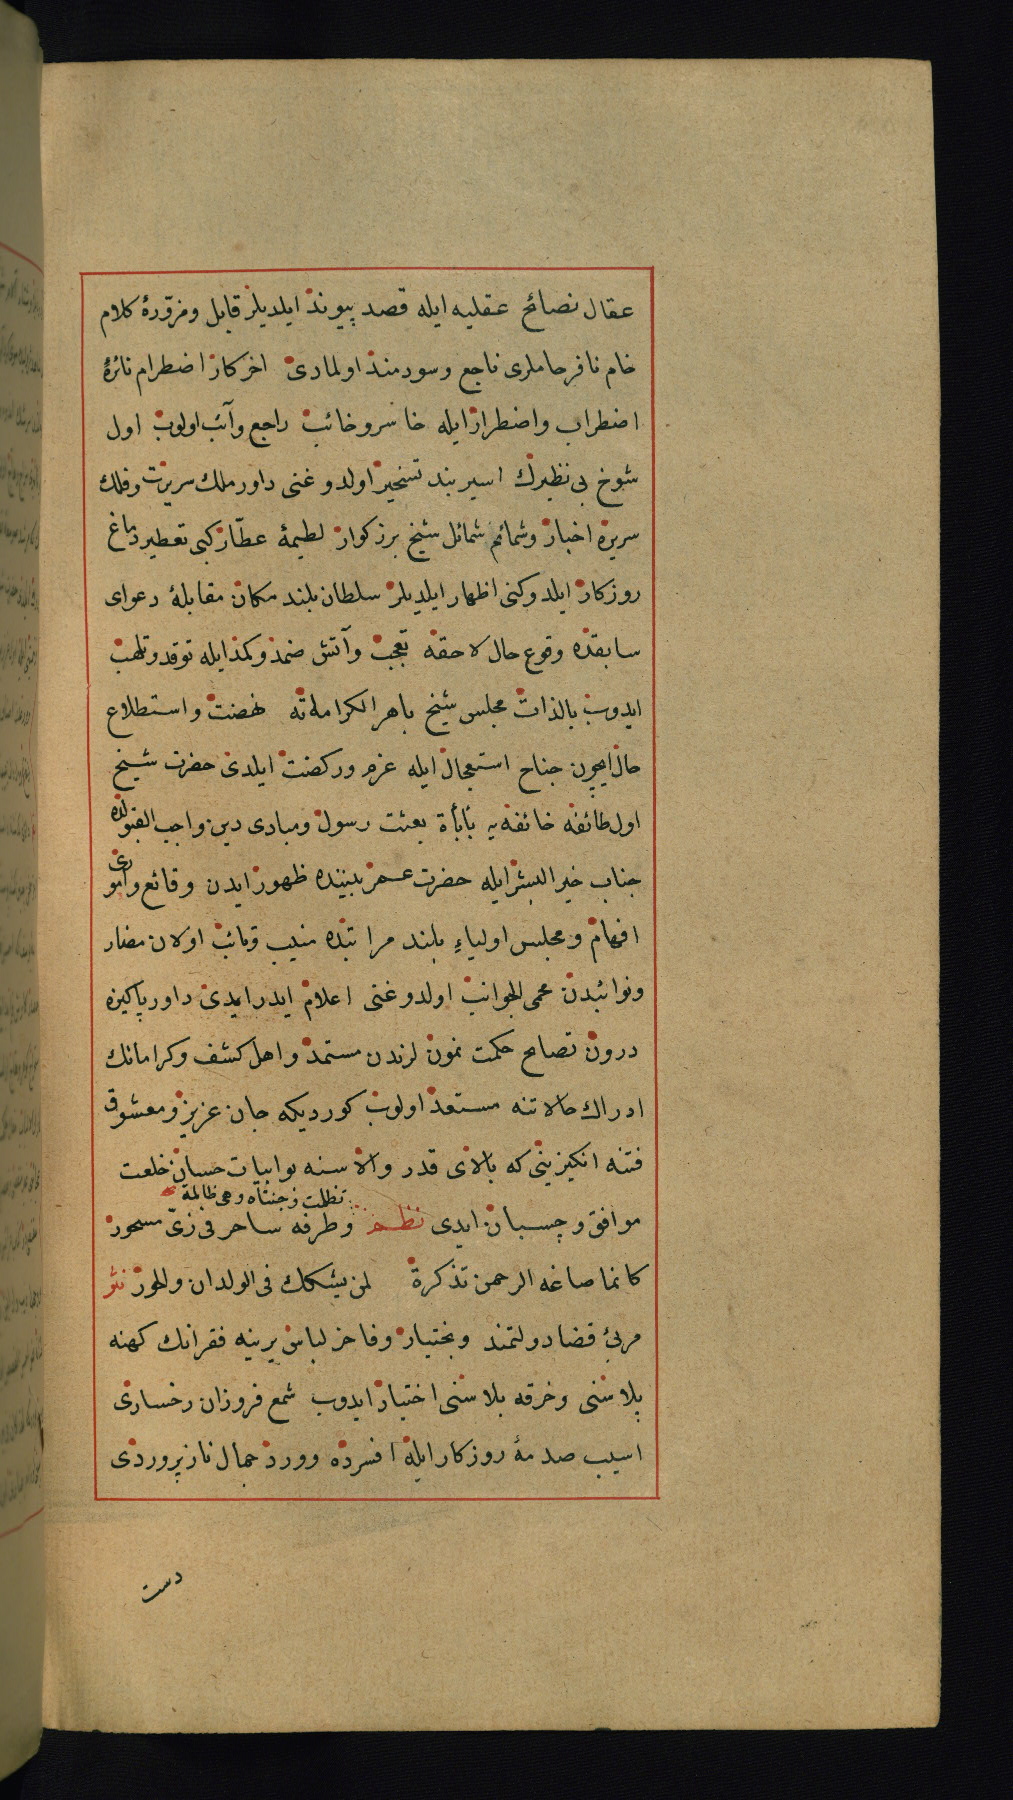 عقال نصائح عقليه ايله قصد پيوند ايلديلر قابل ومزوّرهٔ كلام
خام نافرجاملرى ناجع وسودمند اولمادى اخر كار اضطرام نائرهٔ
اضطراب واضطرار ايله خاسر وخائب راجع وآئب اولوب اول
شوخ بى نظيرك اسير بند تسخير اولدوغنى داور ملك سريرت وفلك
سريره اخبار وشمائم شمائل شيخ بزركوار لطيمهٔ عطّار كبى تعطير دماغ
روزكار ايلدوكنى اظهار ايلديلر سلطان بلند مكان مقابلهٔ دعواى
سابقده وقوع حال لاحقه تعجب وآتش ضمد وكمد ايله توقد وتلهب
ايدوب بالذات مجلس شيخ باهر الكراماته نهضت واستطلاع
حال ايچون جناح استعجال ايله عزم وركضت ايلدى حضرت شيخ
اول طائفه خائفه يه بعثت رسول ومبادى دين واجب القبولده
جناب خير البشر ايله حضرت عمر بيننده ظهور ايدن وقائع وامورى
افهام ومجلس اولياءِ بلند مراتبده منيب وتائب اولان مضار
ونوائبدن محمى الجوانب اولدوغنى اعلام ايدر ايدى داور پاكيزه
درون نصائح حكمت نمونلرندن مستمد واهل كشف وكراماتك
ادراك حالاتنه مستعد اولوب كورديكه جان عزيز ومعشوق
فتنه انكيزينى كه بالاى قدر والاسنه بو ابيات حسان خلعت
تظلمت وجنتاه وهى ظالمة
موافق وچسبان ايدى نظم وطرفه ساحر فى زىّ مسحور
كانما صاغه الرحمن تذكرة لمن يشكك فى الولدان والحور نثر
مربئ قضا دولتمند وبختيار وفاخر لباس يرينه فقرانك كهنه
پلاسنى وخرقه بلاسنى اختيار ايدوب شمع فروزان رخسارى
اسيب صدمهٔ روزكار ايله افسرده وورد جمال نازپروردى
دست